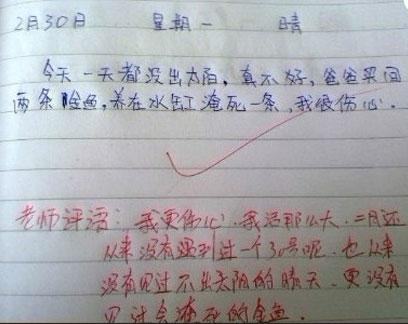 2月30日 星期一 晴
今天一天都没出太阳,真不好,爸爸买回
两条金鱼,养在水缸淹死一条,我很伤心.
老师评语:我更伤心.我活那么大,二月还
从来没有遇到过一个30号呢.也从来
没有见过不出太阳的晴天.更没有
见过会淹死的金鱼.